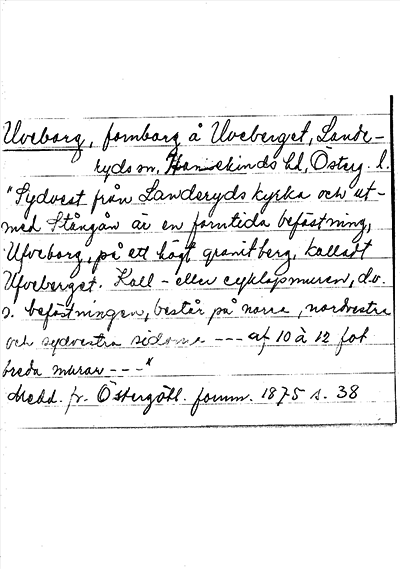 Uveborg, fornborg å Uveberget, Lande-
ryds sn, Hanekinds hd, Österg. l.
"Sydvest från Landeryds kyrka och ut-
med Stångån är en forntida befästning,
Ufveborg, på ett högt granitberg, kalladt
Ufveberget. Kall- eller cyklopmuren, d.v.
s. befästningen, består på norra, nordvestra
och sydvestra sidorna --- af 10 à 12 fot
breda murar ---"
Medd. fr. Östergötl. fornm. 1875 s. 38